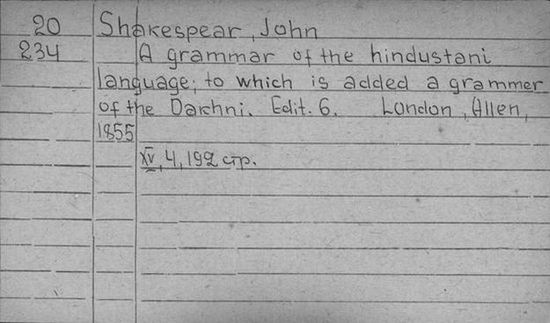 20 Shakespear, John
234 A grammar of the hindustani
language; to which is added a grammer
of the Dakhni. Edit. 6. London, Allen,
1855
XV, 4, 192 стр.